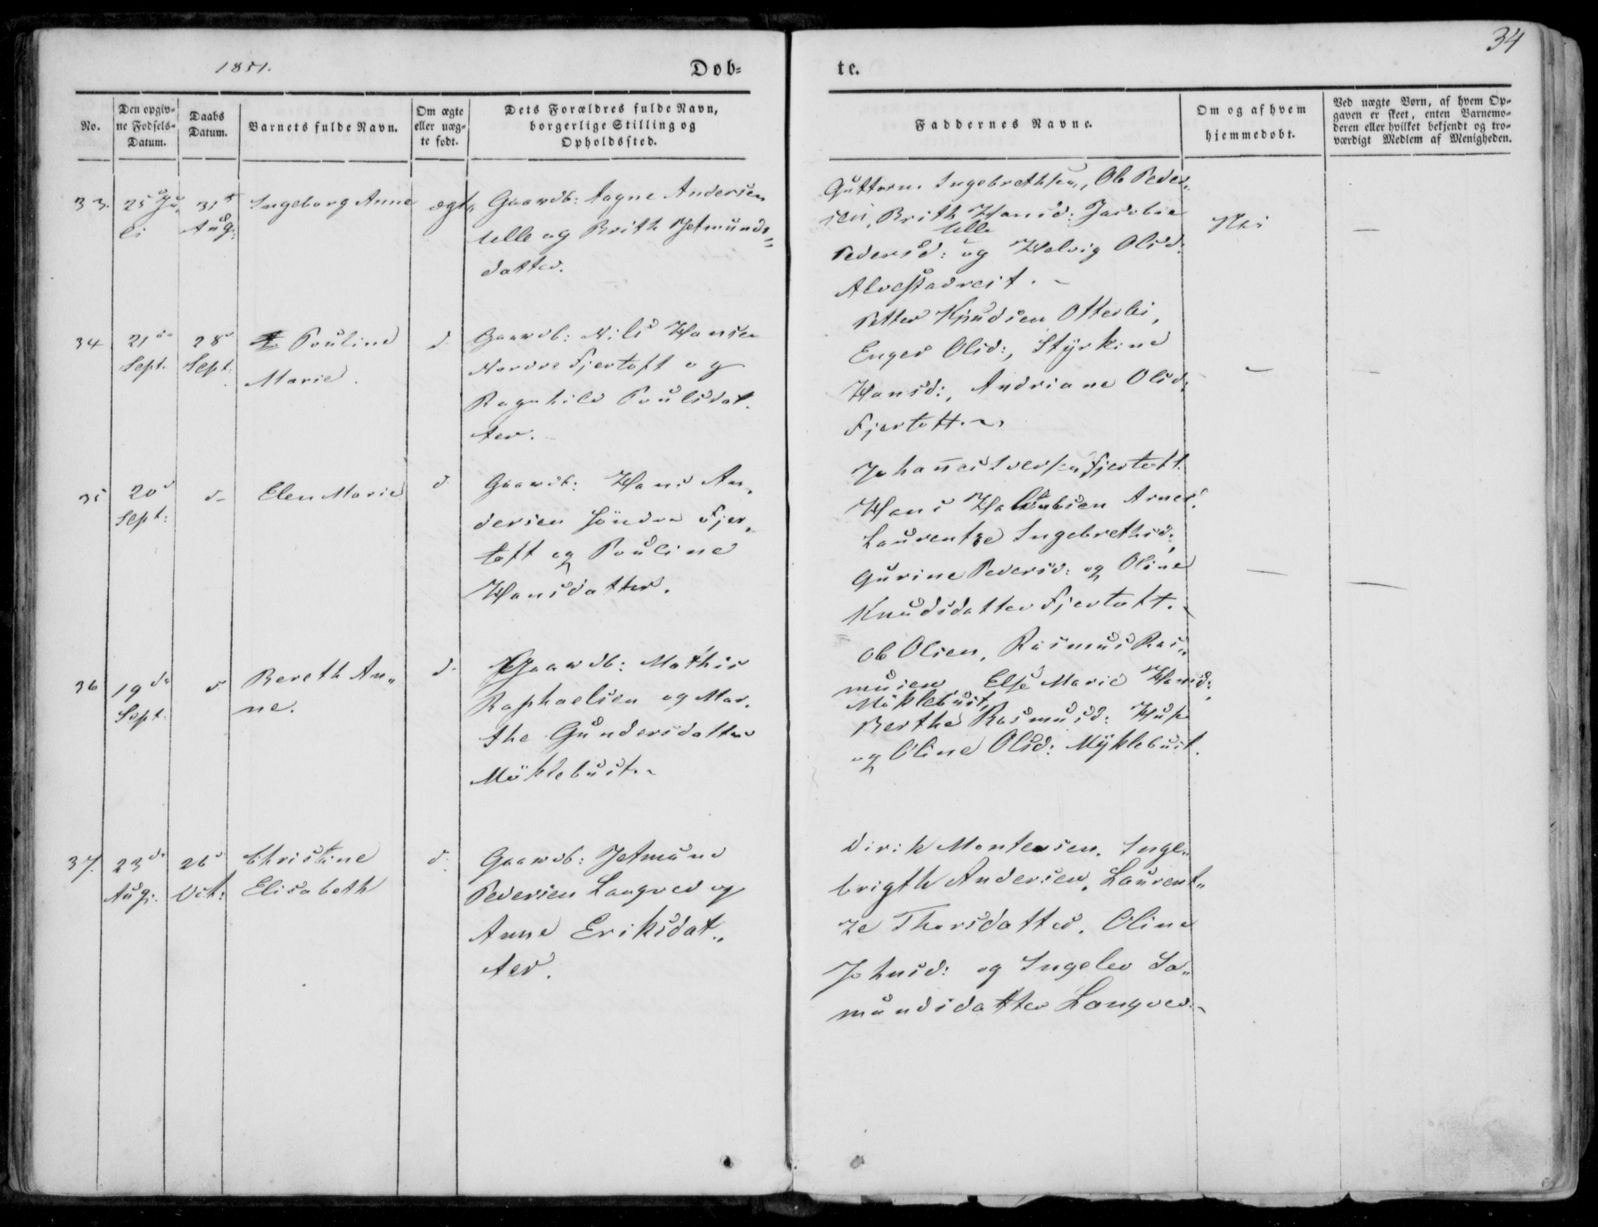 34
1851.
Døb-
te.
No.
Den opgiv-
ne Fødsels-
Datum.
Daabs
Datum.
Barnets fulde Navn.
Om ægte
eller uæg-
te født.
Dets Forældres fulde Navn,
borgerlige Stilling og
Opholdssted.
Faddernes Navne.
Om og af hvem
hjemmedøbt.
Ved uægte Børn, af hvem Op-
gaven er skeet, enten Barnemo-
deren eller hvilket bekjendt og tro-
værdigt Medlem af Menigheden.
33. 25 Ju-
li
31t
Aug:
Ingeborg Anne
ægte
Gaardb: Aagne Andersen
Ulle og Brith Jetmunds-
datter.
Guttorm Ingebrethsen, Ole Peder-
sen, Brith Hansd: Jacobie
Ulle
Pedersd: og Helvig Olsd:
Alvestadreit. -
Nei
-
34 21de
Sept.
28d
Sept.
Pouline
Marie.
d
Gaardb: Nils Hansen
Nordre Fjertoft og
Ragnhild Poulsdat-
ter.
Petter Knudsen Otterlei,
Enger Olsd:, Styrkine
Hansd:, Andriane Olsd:
Fjertoft.
-
-
35 20d
Sept:
d-
Elen Marie
d
Gaardb: Hans An-
dersen Söndre Fjer-
toft og Pouline
Hansdatter.
Johannes Iversen Fjertoft.
Hans Arnes:
Laurentze Ingebrethsd:,
Gurine Pedersd: og Oline
Knudsdatter Fjertoft.
-
-
36 19de
Sept.
d
Bereth An-
ne.
d.
Gaardb: Mathis
Raphaelsen og Mar-
the Gundersdatter
Möklebust.
Ole Olsen, Rasmus Ras-
musen, Else Marie Hansd:
Möklebust,
Berthe Rasmusd: Huse
og Oline Olsd: Myklebust.
37. 23de
Aug:
26d
Oct:
Christine
Elisabeth
d.
Gaardb: Jetmund
Pedersen Langved og
Anne Eriksdat-
ter.
Dirik Montesen, Inge-
brigth Andersen, Laurent-
ze Thorsdatter, Oline
Johnsd: og Ingeleo Sa-
mundsdatter Langved.